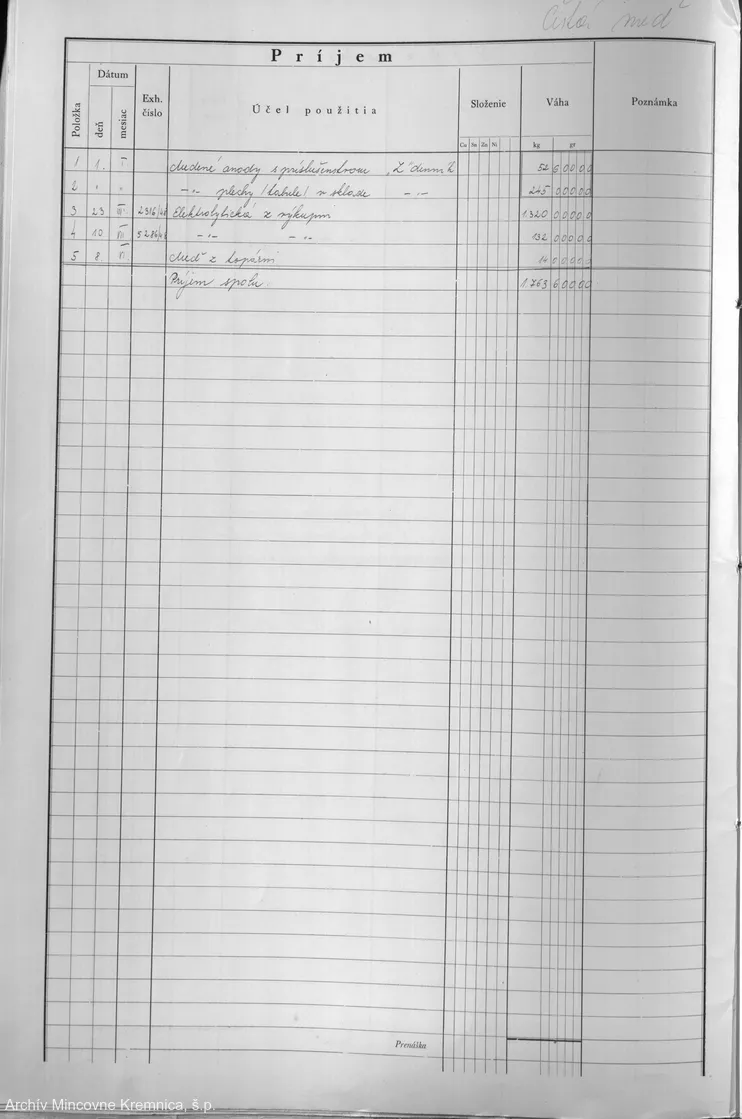 Čistá meď
Príjem
Položka
Dátum
deň
mesiac
Exh. číslo
Účel použitia
Složenie
Cu Sn Zn Ni
Váha
kg gr
Poznámka
1 1. I Medené anody s príslušenstvom „Z" denník 52 60000
2 " " -"- plechy /tabule/ v sklade -"- 245 00000
3 23 III 2316/48 Elektrolytická z výkupu 1.320 00000
4 10 5286/48 -"- -"- 132 00000
5 8. Meď z 14 00000
Príjem spolu 1.763 60000
Prenáška
Archív Mincovne Kremnica, š.p.